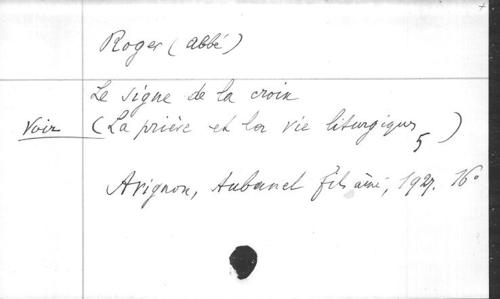 Roger (abbé)
Le signe de la croix
Voir (La prière et la vie liturgiques 5)
Avignon, Aubanel fils aîné, 1927. 16°